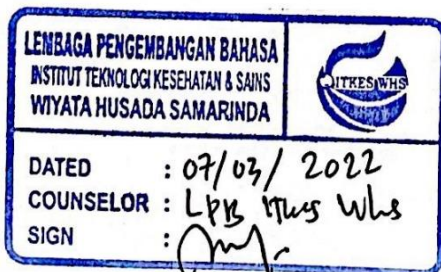 LEMBAGA PENGEMBANGAN BAHASA
INSTITUT TEKNOLOGI KESEHATAN & SAINS
WIYATA HUSADA SAMARINDA
ITKES WHS
DATED : 07/03/2022
COUNSELOR : LPB ITKES WHS
SIGN :